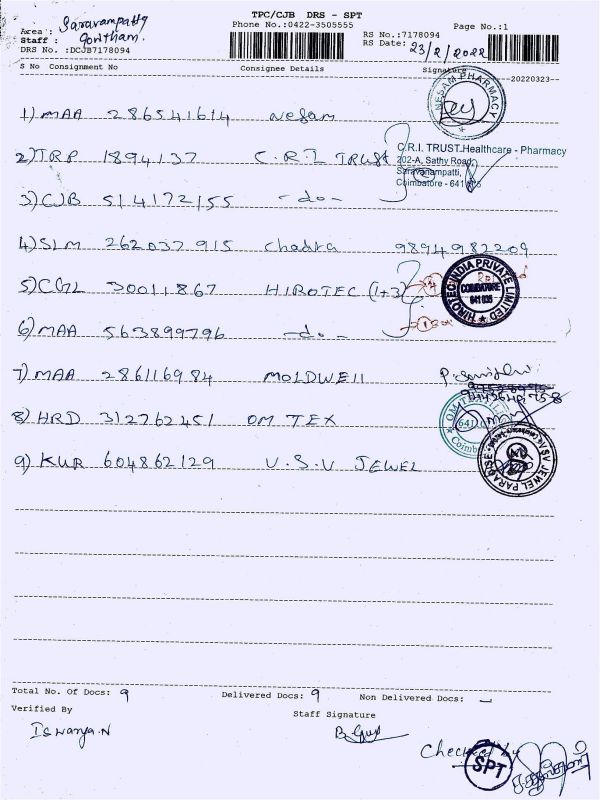 TPC/CJB DRS - SPT
Phone No.:0422-3505555
Page No.:1
Area : Saravampatty
Staff : Gowtham.
DRS No. :DCJB7178094
RS No.:7178094
RS Date: 23/2/2022
S No Consignment No Consignee Details Signature
20220323
1) MAA 286541614 Nesam
NESAM PHARMACY
2) TRP 1894137 C.R.I TRUST
C.R.I. TRUST.Healthcare - Pharmacy
202-A, Sathy Road
Saravanampatti,
Coimbatore - 641
3) CJB 514172155 -do-
4) SLM 262037915 Chadra 9894982209
5) CGL 30011867 HIROTEC (1+3)
HIROTEC INDIA PRIVATE LIMITED
COIMBATORE
641 035
6) MAA 563899796 -do-
7) MAA 286116984 MOLDWEll
8) HRD 312762451 OM TEX
9) KUR 604862129 V.S.V JEWEL
VSV JEWEL PARADISE
Total No. Of Docs: 9 Delivered Docs: 9 Non Delivered Docs: -
Verified By
Staff Signature
Iswarya.N
Checked by
SPT